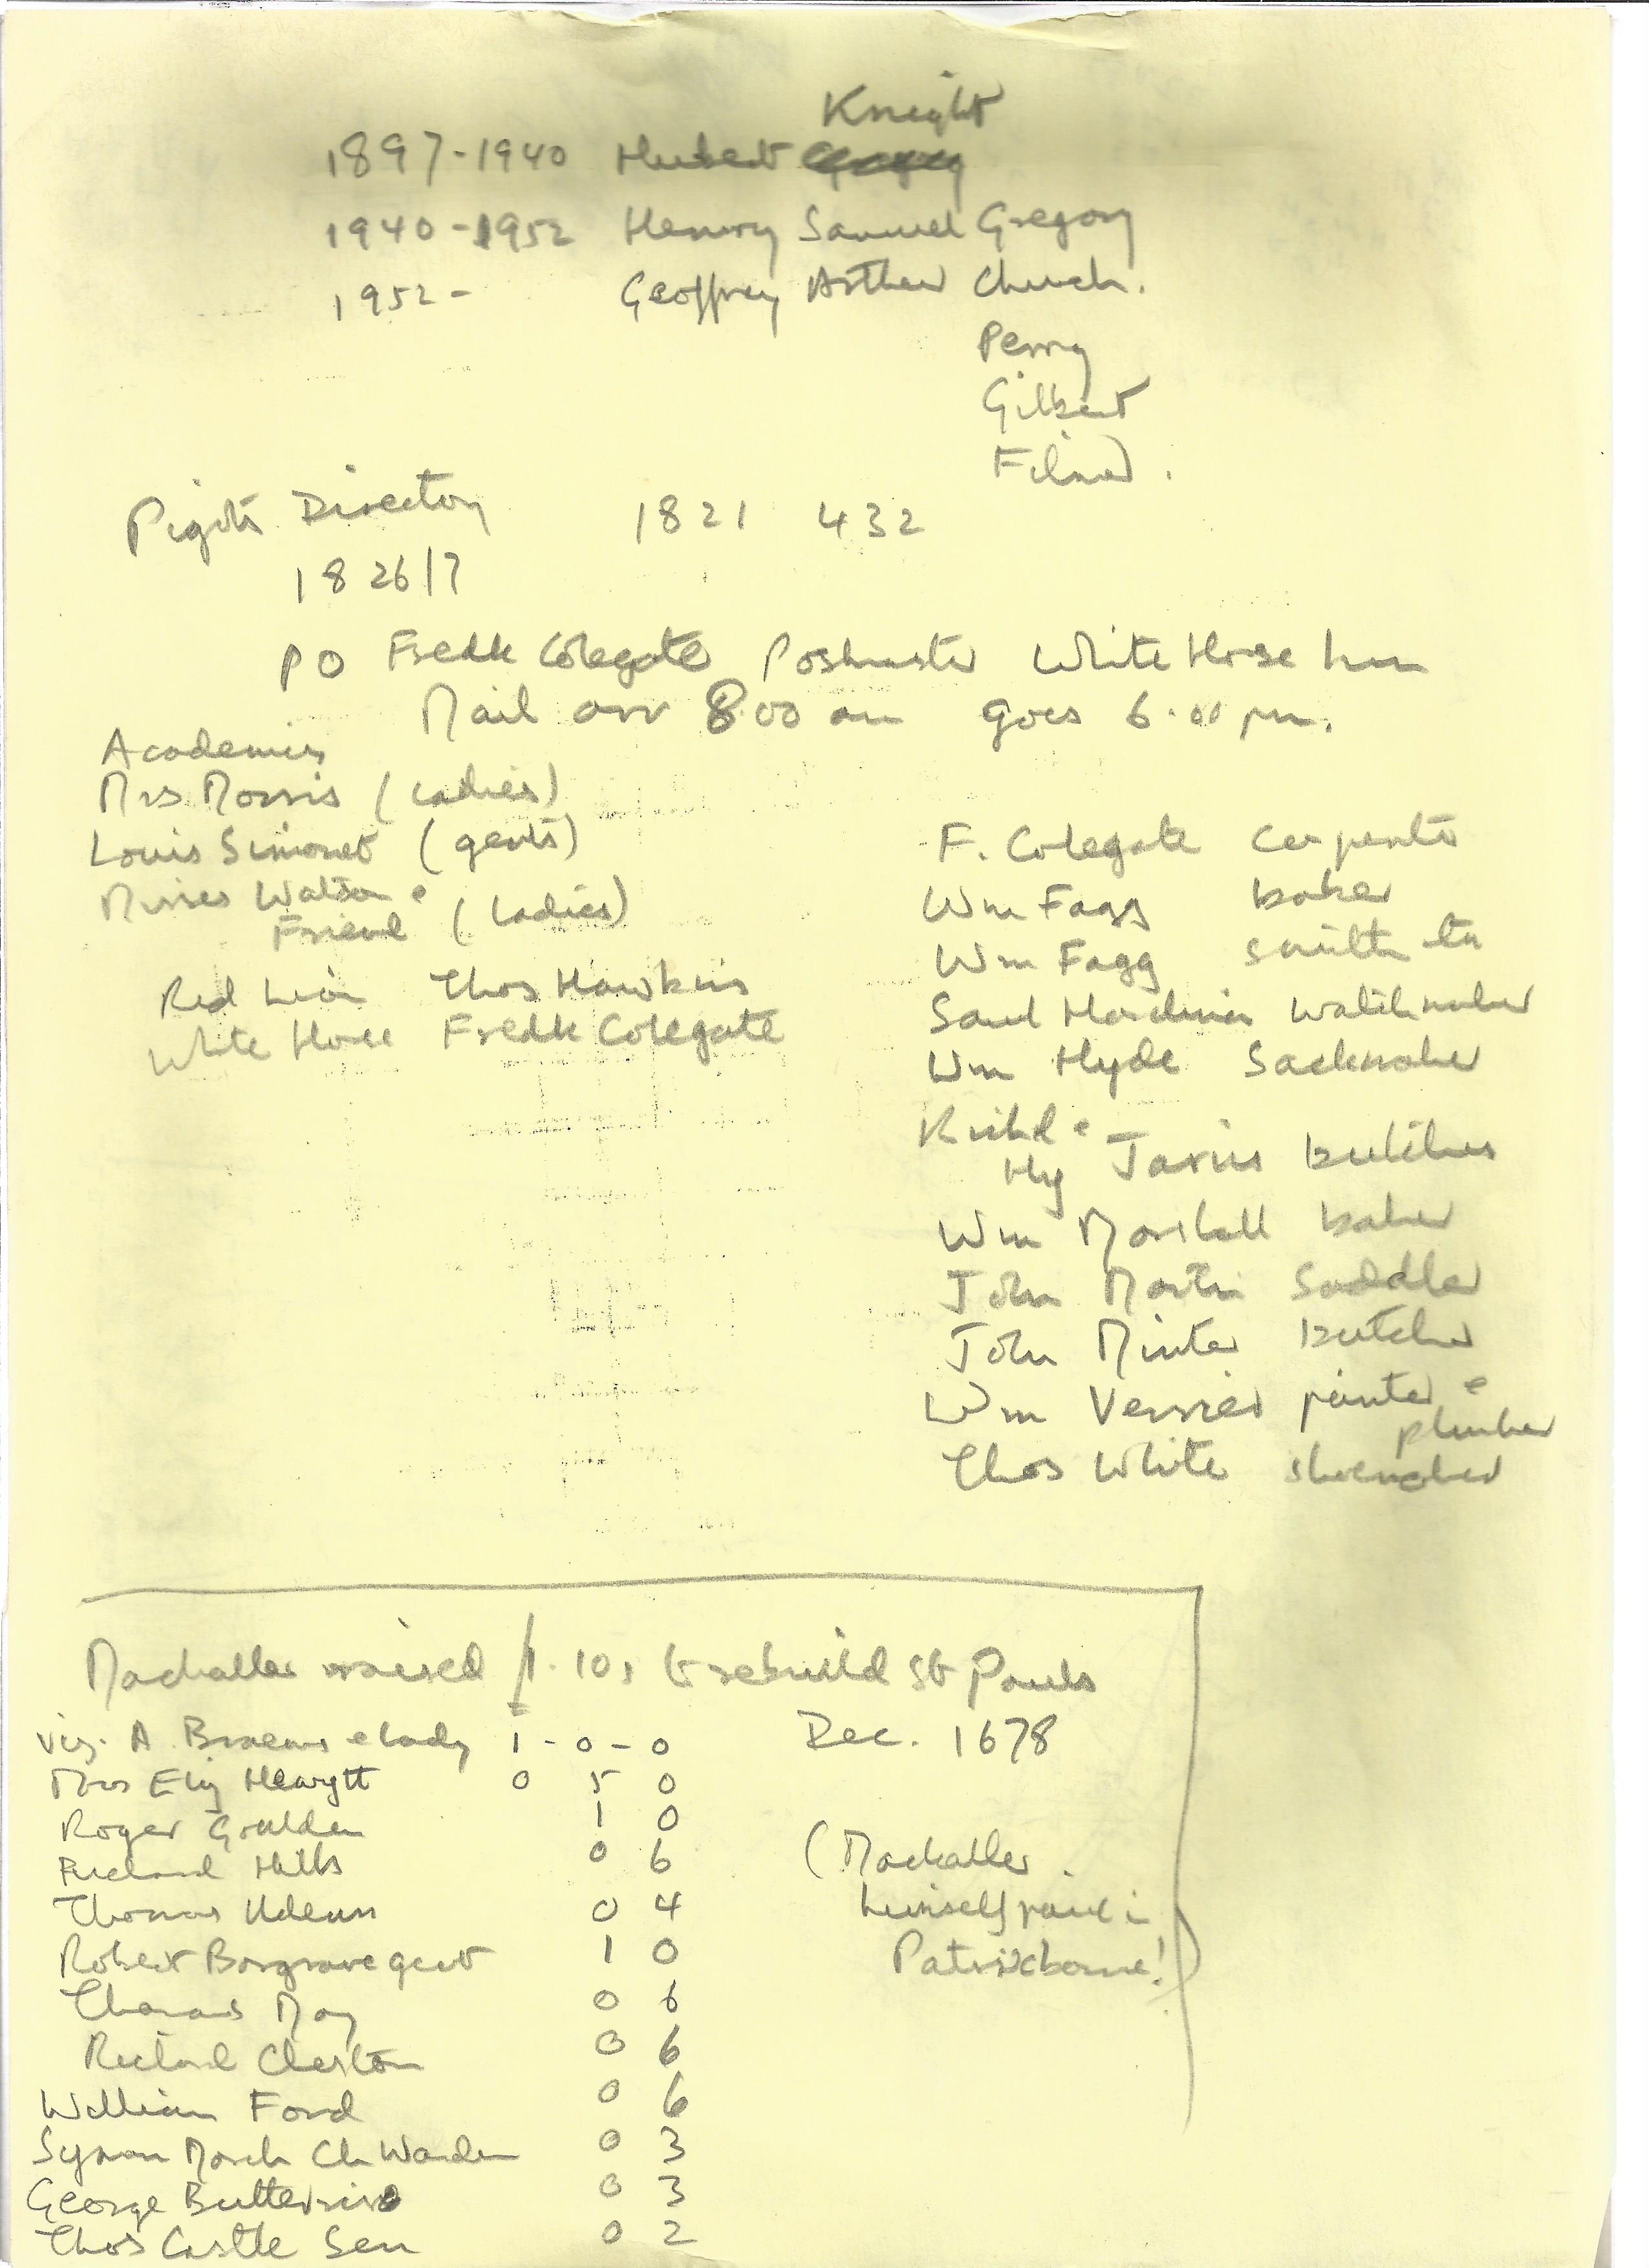 Knight
1897-1940 Hubert
1940-1952 Henry Samuel Gregory
1952- Geoffrey Arthur Church.
Perry
Gilbert
Pigots Directory 1821 432
1826/7
PO Fredk Colegate Postmaster White Horse Inn
Mail arr 8.00 am goes 6.00 pm.
Academies
Mrs Morris (ladies)
Louis Simonet (gents)
Misses Watson &
Friend (ladies)
Red Lion Thos Hawkins
White Horse Fredk Colegate
F. Colegate carpenter
Wm Fagg baker
Wm Fagg smith
Saml Hardman watchmaker
Wm Hyde Sackmaker
Richd &
Hy Jarvis butchers
Wm Marshall baker
John Martin Saddler
John Minter butcher
Wm Verrier painter &
plumber
Thos White shoemaker
Mackaller raised £1. 10s to rebuild St Pauls
viz. A Braems & lady 1 - 0 - 0 Dec. 1678
Mrs Eliz Hewytt 0 5 0
Roger Goulden 1 0
Richard Hills 0 6
Thomas 0 4
Robert Bargrave gent 1 0
Thomas May 0 6
Richard 0 6
William Ford 0 6
Symon March Ch Warden 0 3
George 0 3
Thos Castle Sen 0 2
(Mackaller
himself paid in
Patrixbourne!)